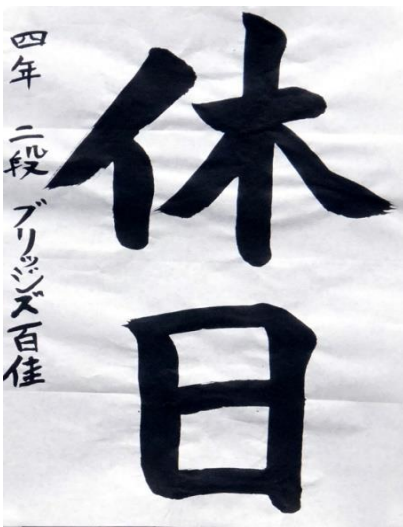 休日
四年 二段 ブリッジズ百佳